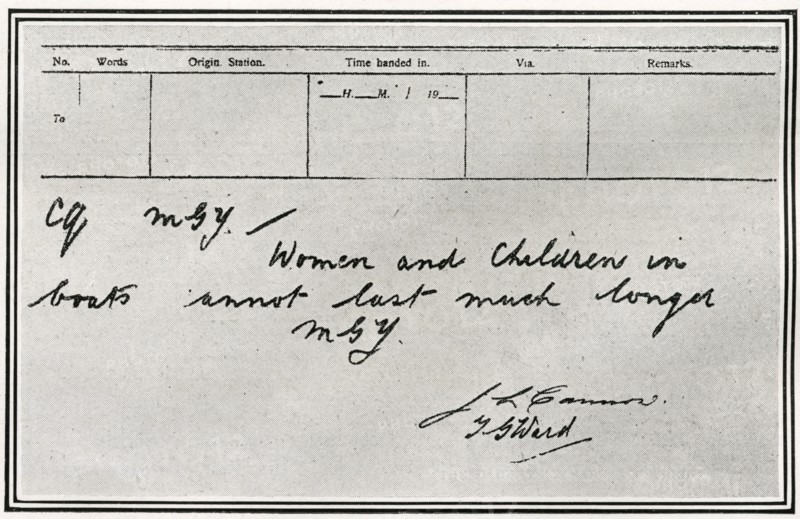 No. Words Origin. Station. Time handed in. Via. Remarks.
H. M. / 19
To
CQ MGY. /
Women and Children in
boats annot last much longer
MGY.
J L Cannon.
T G Ward